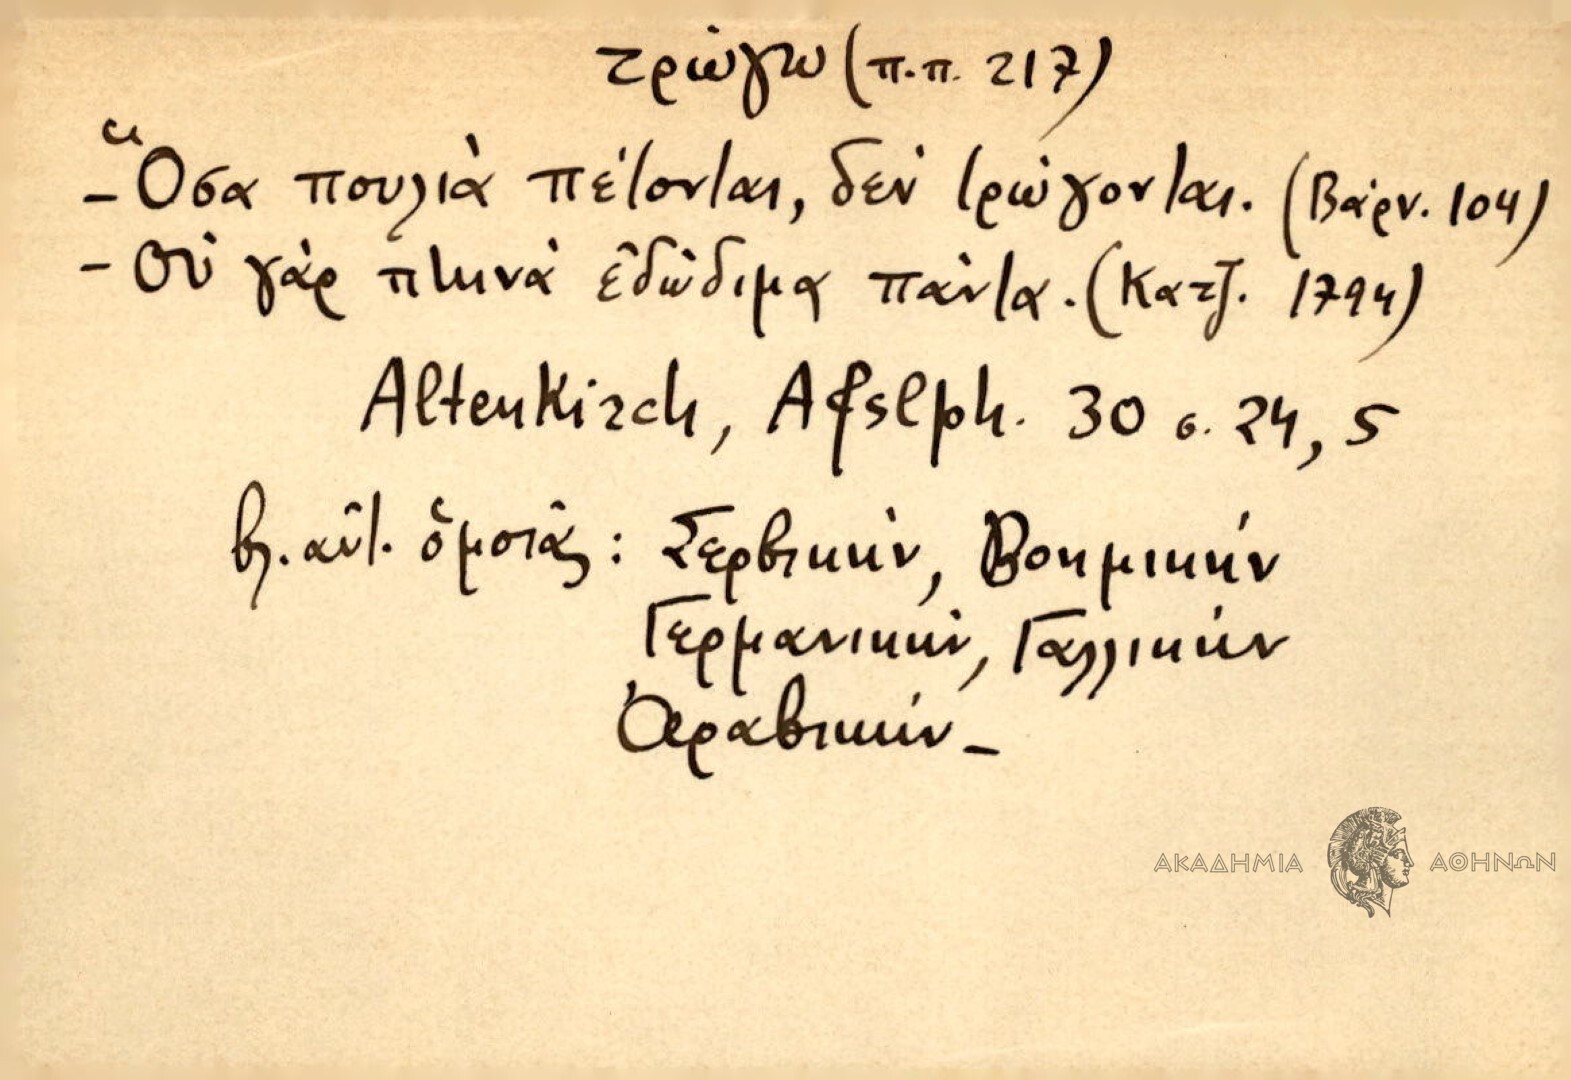 τρώγω (π.π. 217)
- Ὅσα πουλιὰ πέτονται, δὲν τρώγονται. (Βάρν. 104)
- Οὐ γὰρ πτηνὰ ἐδώδιμα πάντα. (Κατζ. 1794)
Altenkirch, Afslph. 30 σ. 24, 5
βλ. αὐτ. ὁμοίας : Σερβικήν, Βοημικήν
Γερμανικήν, Γαλλικήν
Ἀραβικήν -
ΑΚΑΔΗΜΙΑ ΑΘΗΝΩΝ